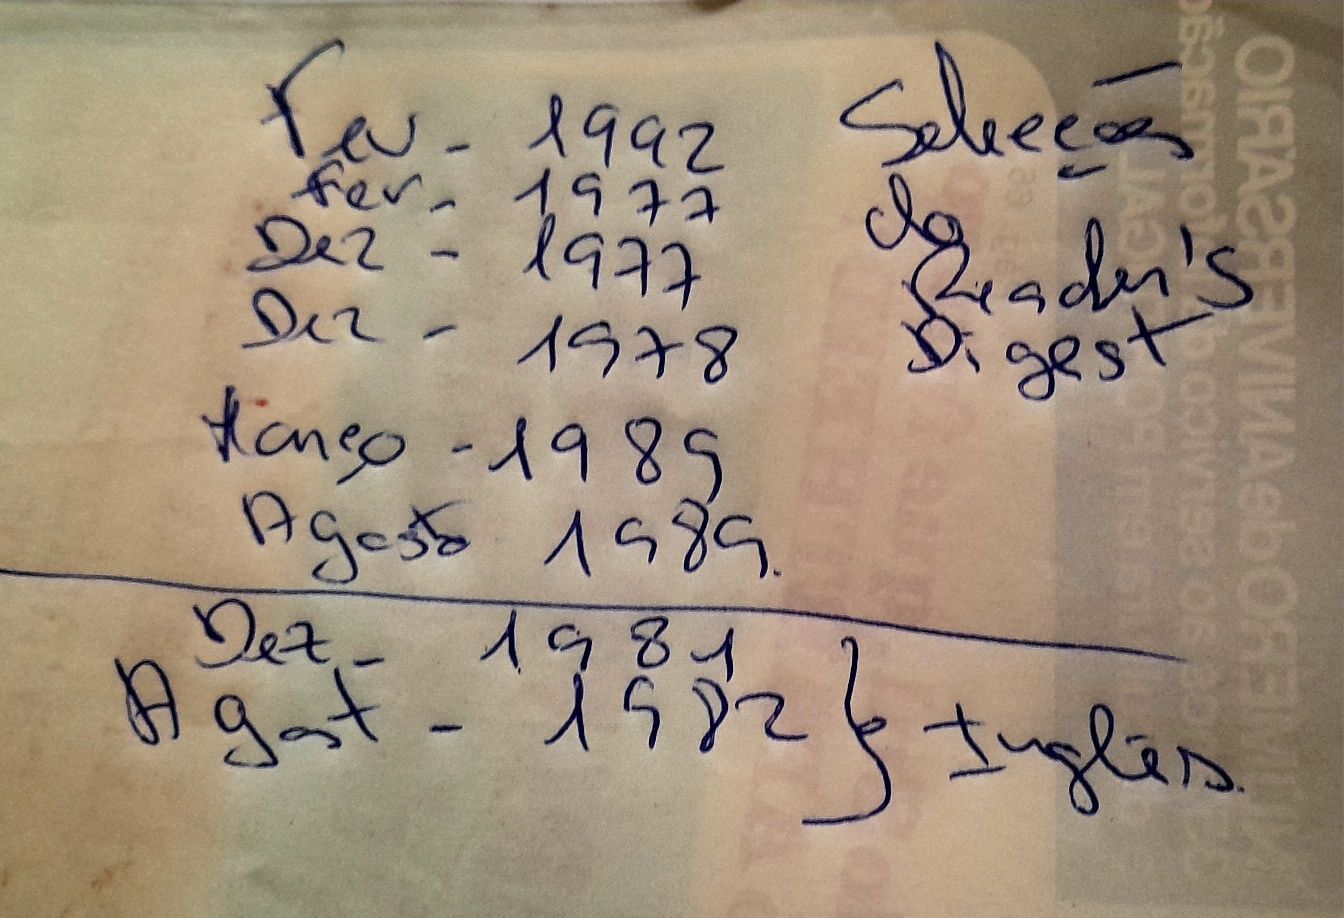 Fev - 1992
Fev. - 1977
Dez - 1977
Dez - 1978
Março - 1989
Agosto 1989.
Selecções
do
Reader's
Digest
Dez - 1981
Agost - 1982
} Inglês.